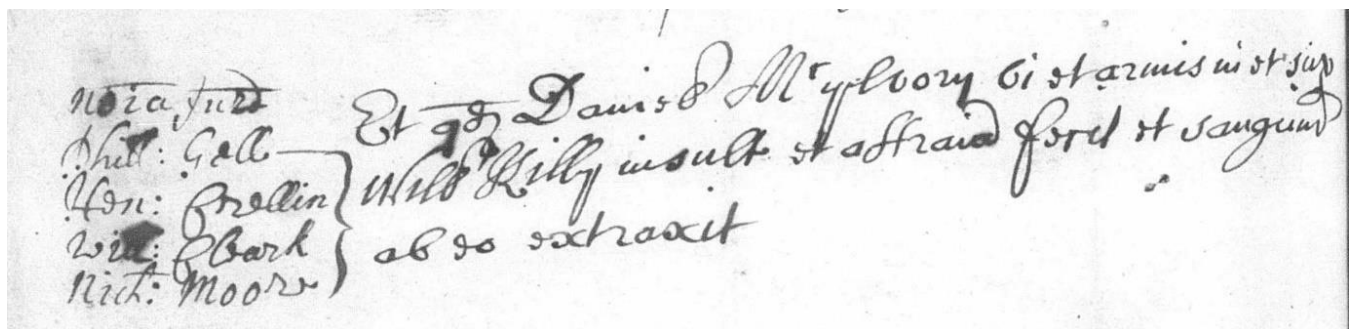 Noĩa Jur̃
Phill: Gell
Hen: Crellin
Will: Clark
Nich: Moore
Et qđ Daniel Mc ylvory vi et armis in et sup
Willm Killy insult et affraiã fecit et sanguinẽ
ab eo extraxit